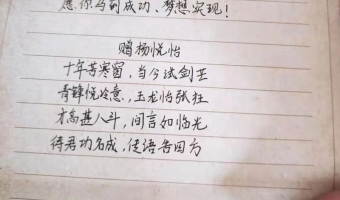 愿你马到成功、梦想实现!
赠杨悦怡
十年苦寒窗,当今试剑芒
青锋悦冷意,玉龙怡张狂
才高甚八斗,间言如临光
待君功名成,传语告四方